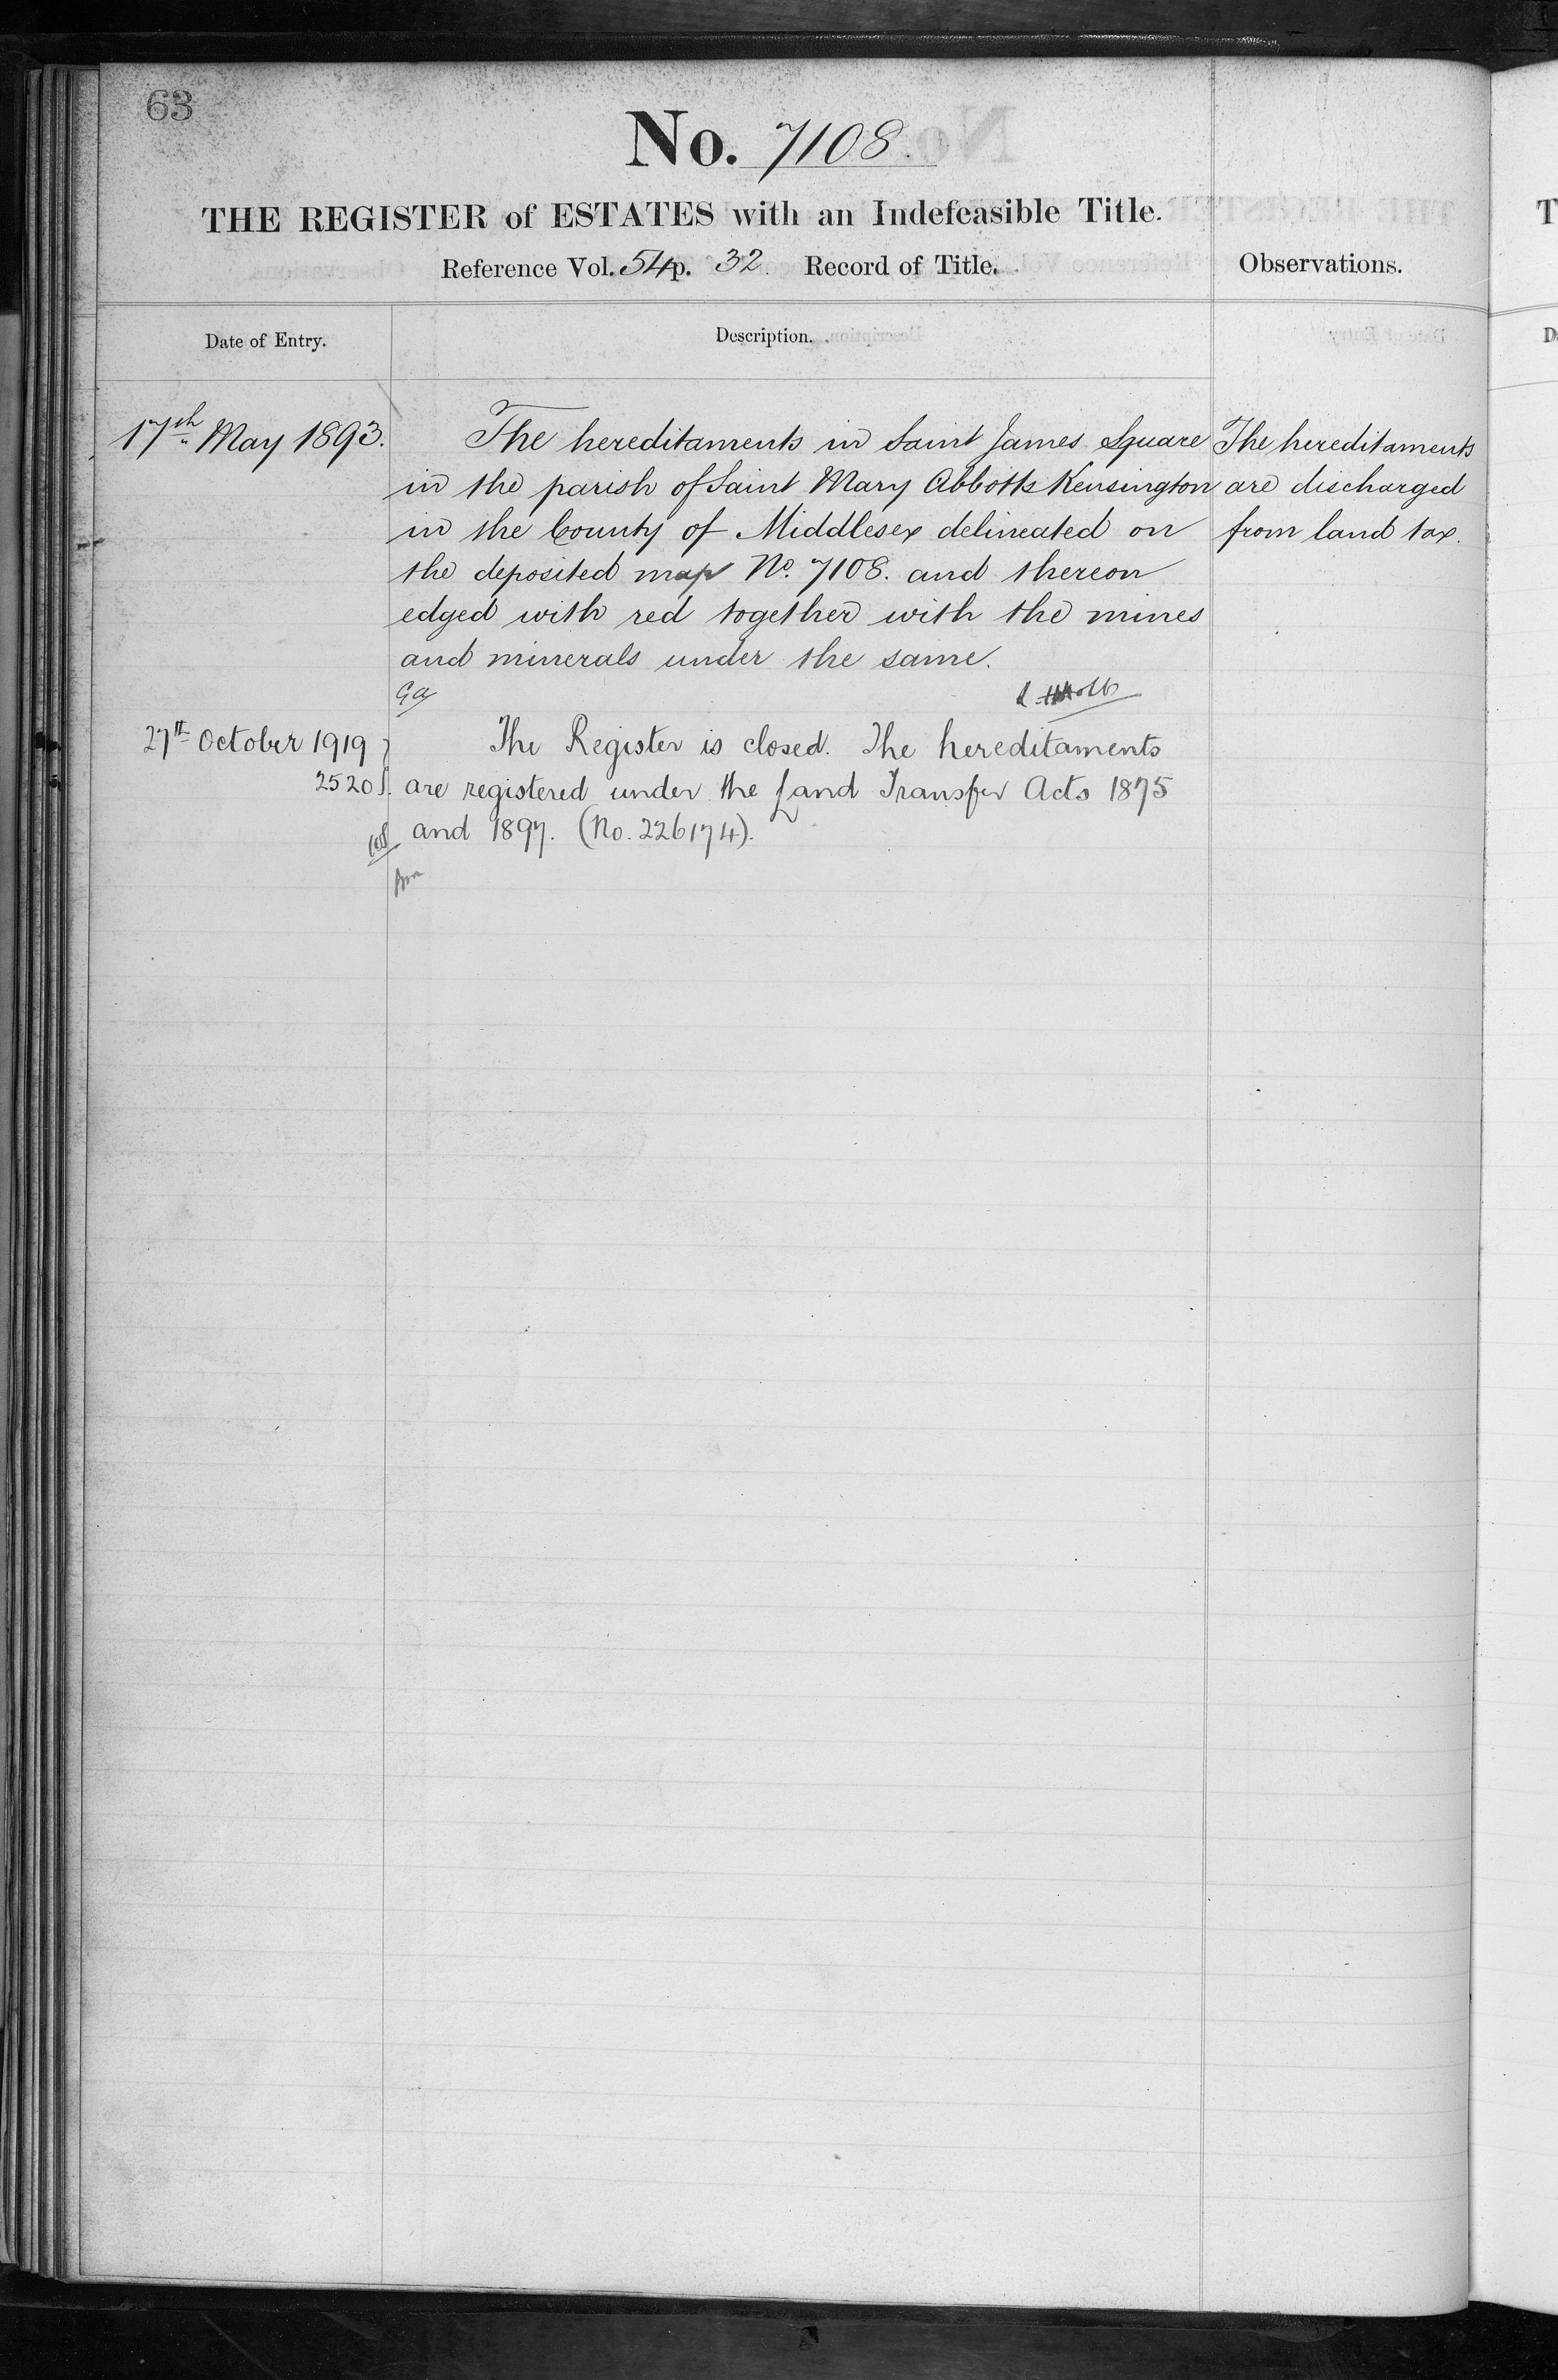 63
No. 7108.
THE REGISTER of ESTATES with an Indefeasible Title.
Reference Vol. 54 p. 32. Record of Title.
Observations.
Date of Entry.
Description.
17th May 1893.
The hereditaments in Saint James Square
in the parish of Saint Mary Abbotts Kensington
in the County of Middlesex delineated on
the deposited map No. 7108. and thereon
edged with red together with the mines
and minerals under the same.
The hereditaments
are discharged
from land tax.
27th October 1919
2520
The Register is closed. The hereditaments
are registered under the Land Transfer Acts 1875
and 1897. (No. 226174).